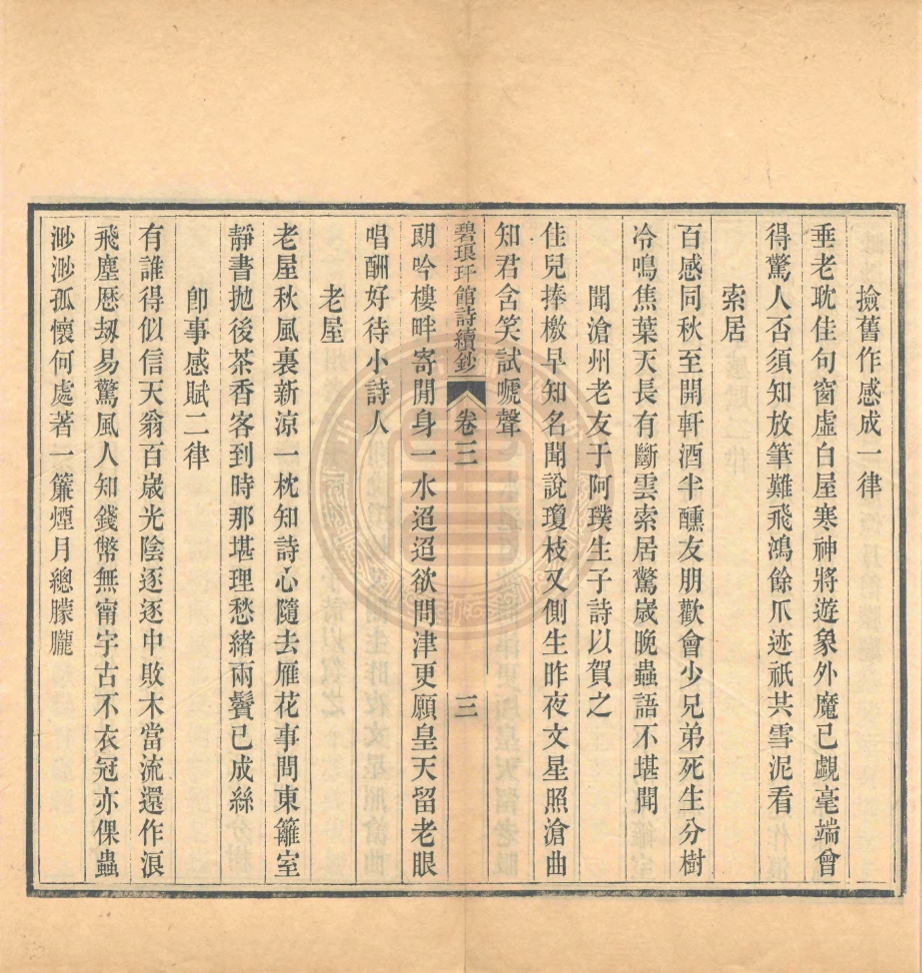 撿舊作感成一律
垂老耽佳句窗虛白屋寒神將遊象外魔已覷毫端會
得驚人否須知放筆難飛鴻餘爪迹祇共雪泥看
索居
百感同秋至開軒酒半醺友朋歡會少兄弟死生分樹
冷鳴焦葉天長有斷雲索居驚歲晚蟲語不堪聞
聞滄州老友于阿璞生子詩以賀之
佳兒捧檄早知名聞說瓊枝又側生昨夜文星照滄曲
知君含笑試嗁聲
碧琅玕館詩續鈔 卷三 三
朗吟樓畔寄閒身一水迢迢欲問津更願皇天留老眼
唱酬好待小詩人
老屋
老屋秋風裏新涼一枕知詩心隨去雁花事問東籬室
靜書拋後茶香客到時那堪理愁緒兩鬢已成絲
卽事感賦二律
有誰得似信天翁百歲光陰逐逐中敗木當流還作浪
飛塵歷刼易驚風人知錢幣無甯宇古不衣冠亦倮蟲
渺渺孤懷何處著一簾煙月總朦朧